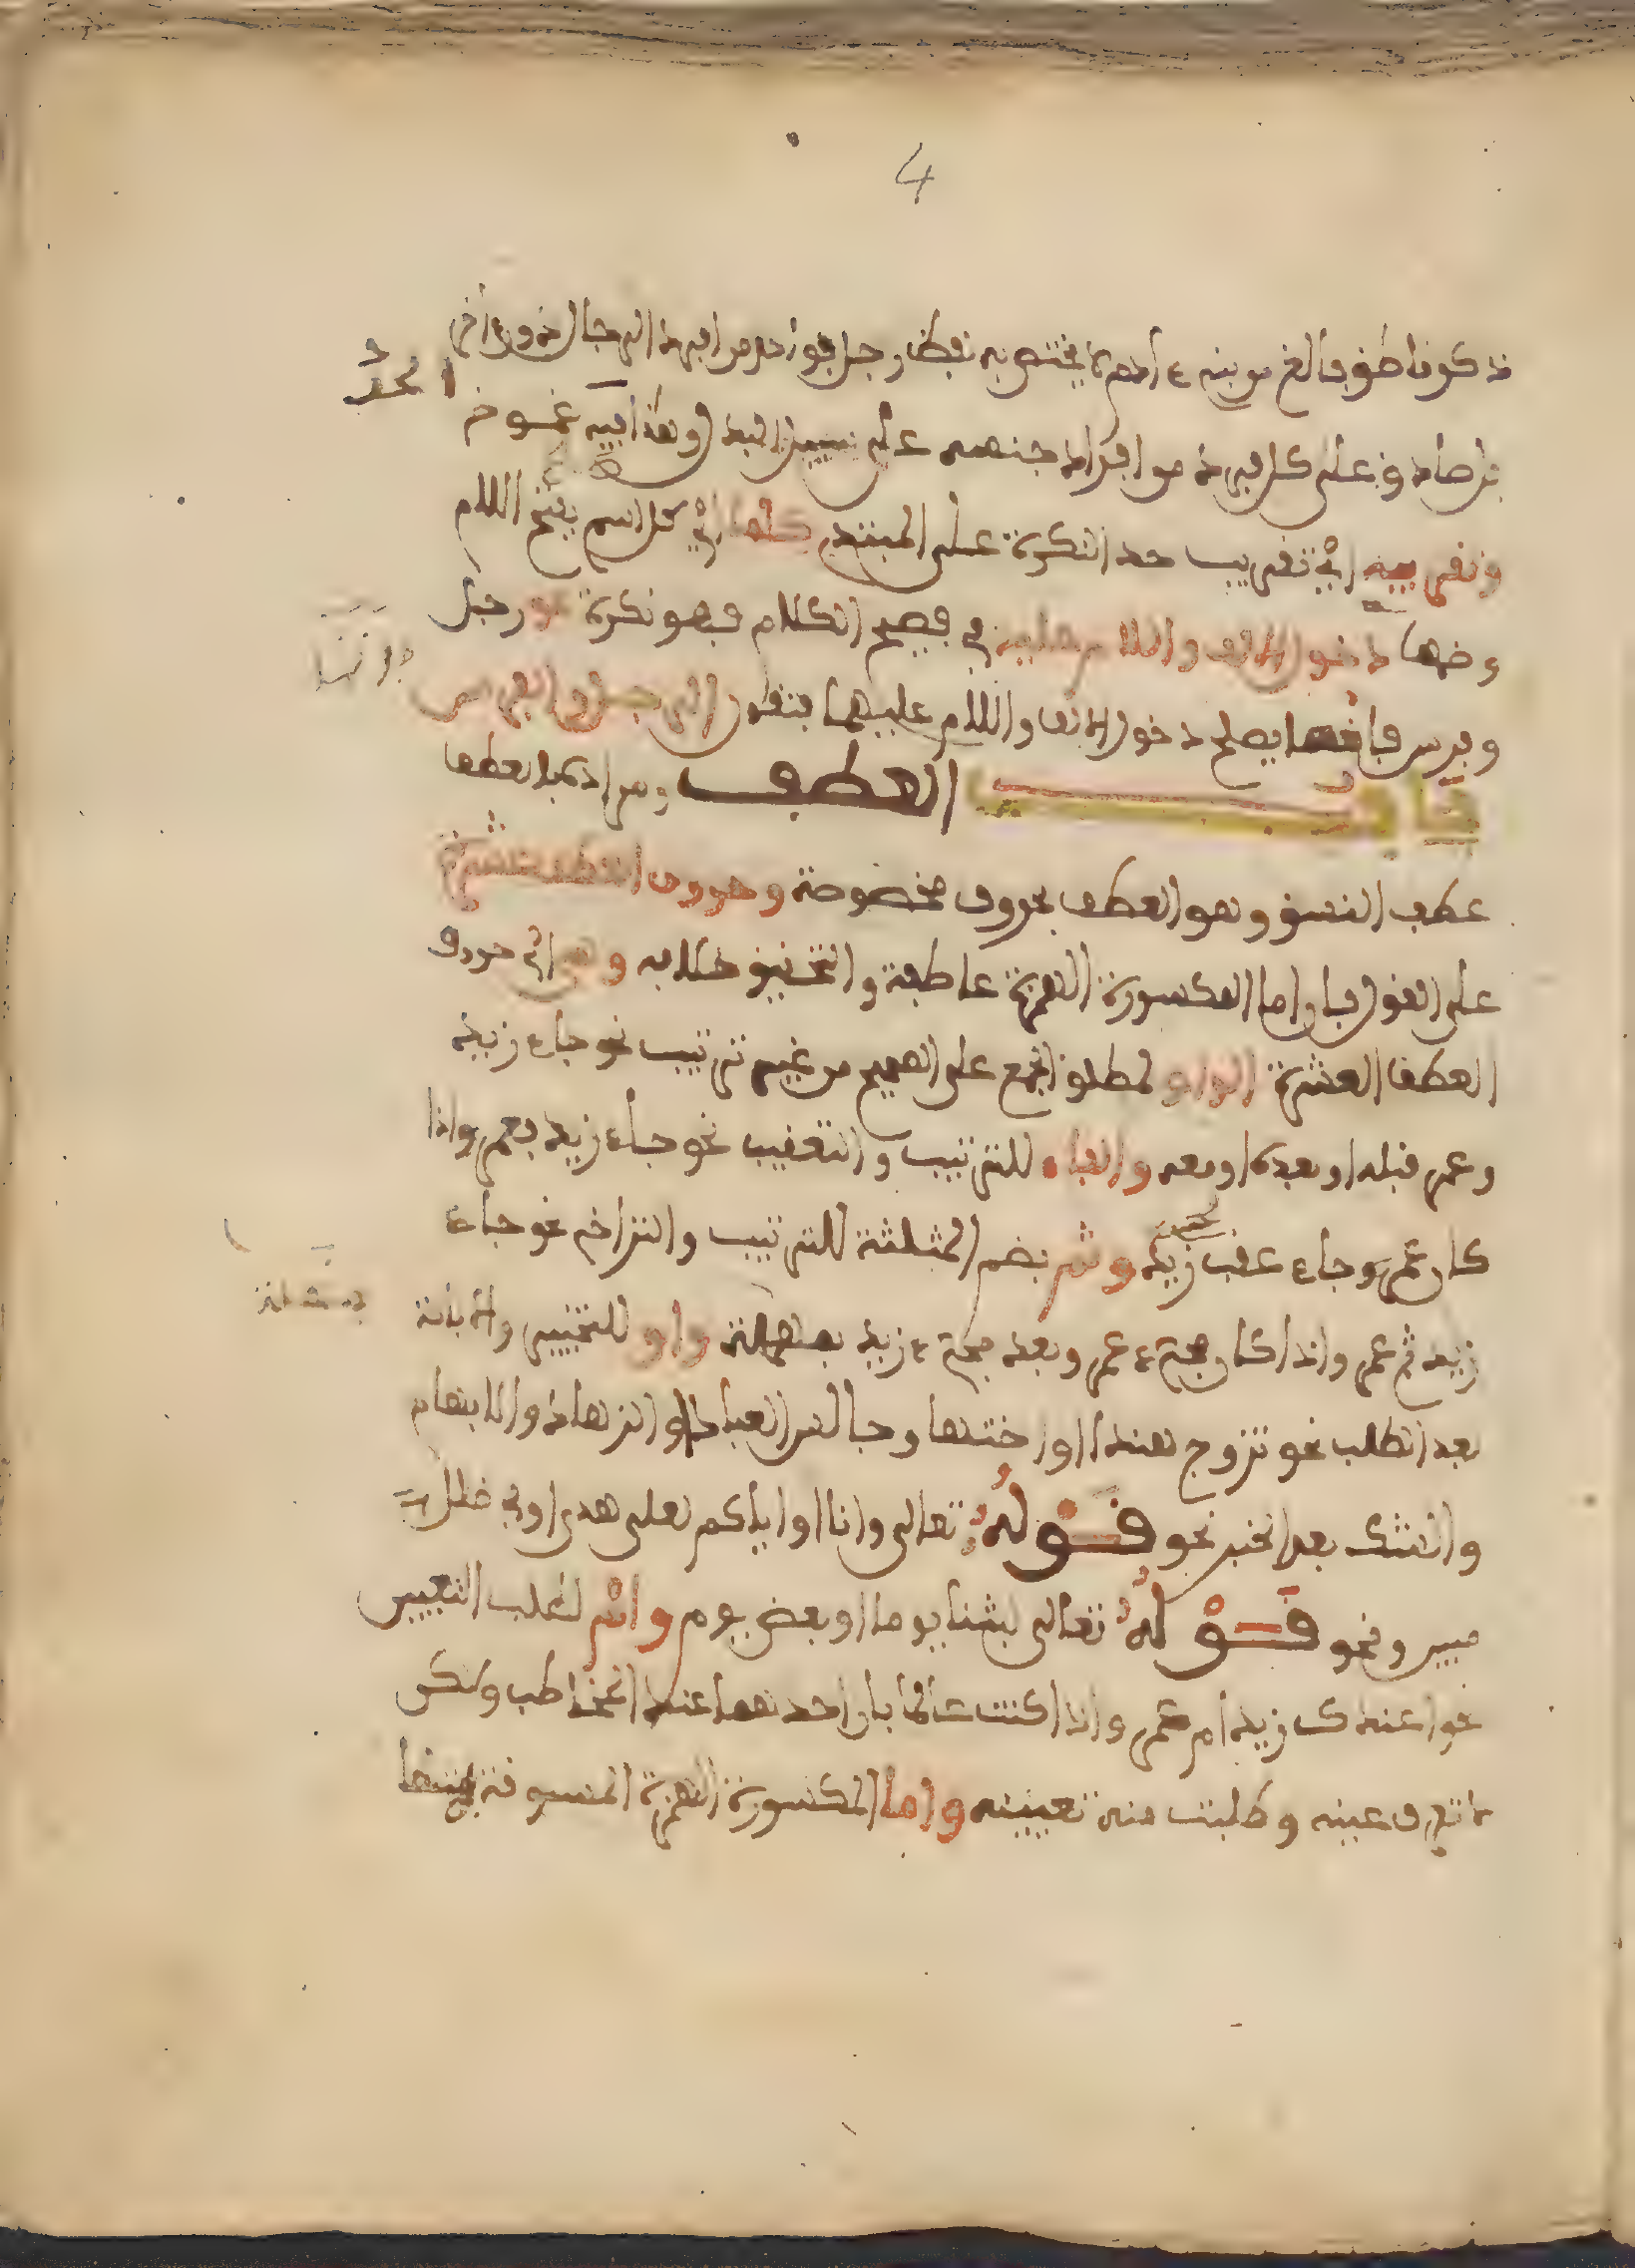 4
ذكر ناطق بالغ من بني ءادم لا يختص به لفظ رجل بواحد من افراد الرجال دون ءاخر
بل صادق على كل فرد من افراد جنسه على سبيل البدل وهذا فيه غموض
وتقريبه اي تقريب حد النكرة على المبتدي كلما اي كل اسم بفتح اللام
وضمها دخول الالف واللام عليه في فصيح الكلام فهو نكرة نحو رجل
وفرس فانهما يصلح دخول الالف واللام عليهما فتقول الرجل والفرس
باب العطف ومراده بالعطف
عطف النسق وهو العطف بحروف مخصوصة وحروف العطف عشرة
على القول بان اما المكسورة الهمزة عاطفة والتحقيق خلافه وهي اي حروف
العطف العشرة الواو لمطلق الجمع على الصحيح من غير ترتيب نحو جاء زيد
وعمر قبله او بعده او معه والفاء للترتيب والتعقيب نحو جاء زيد فعمر واذا
كان عمر وجاء عقب زيد وثم بضم المثلثة للترتيب والتراخي نحو جاء
زيد ثم عمر واذا كان مجيء عمر وبعد مجيء زيد بمهلة واو للتخيير والاباحة
بعد الطلب نحو تزوج هندا او اختها وجالس العباد او الزهاد والابهام
والشك بعد الخبر نحو قوله تعالى وانا او اياكم لعلى هدى او في ضلل
مبين ونحو قوله تعالى لبثنا يوما او بعض يوم وام لطلب التعيين
نحو اعندك زيد ام عمر واذا كنت عالما بان احدهما عند المخاطب ولكن
لا تعرف عينه وطلبت منه تعيينه واما المكسورة الهمزة المسبوقة بمثلها